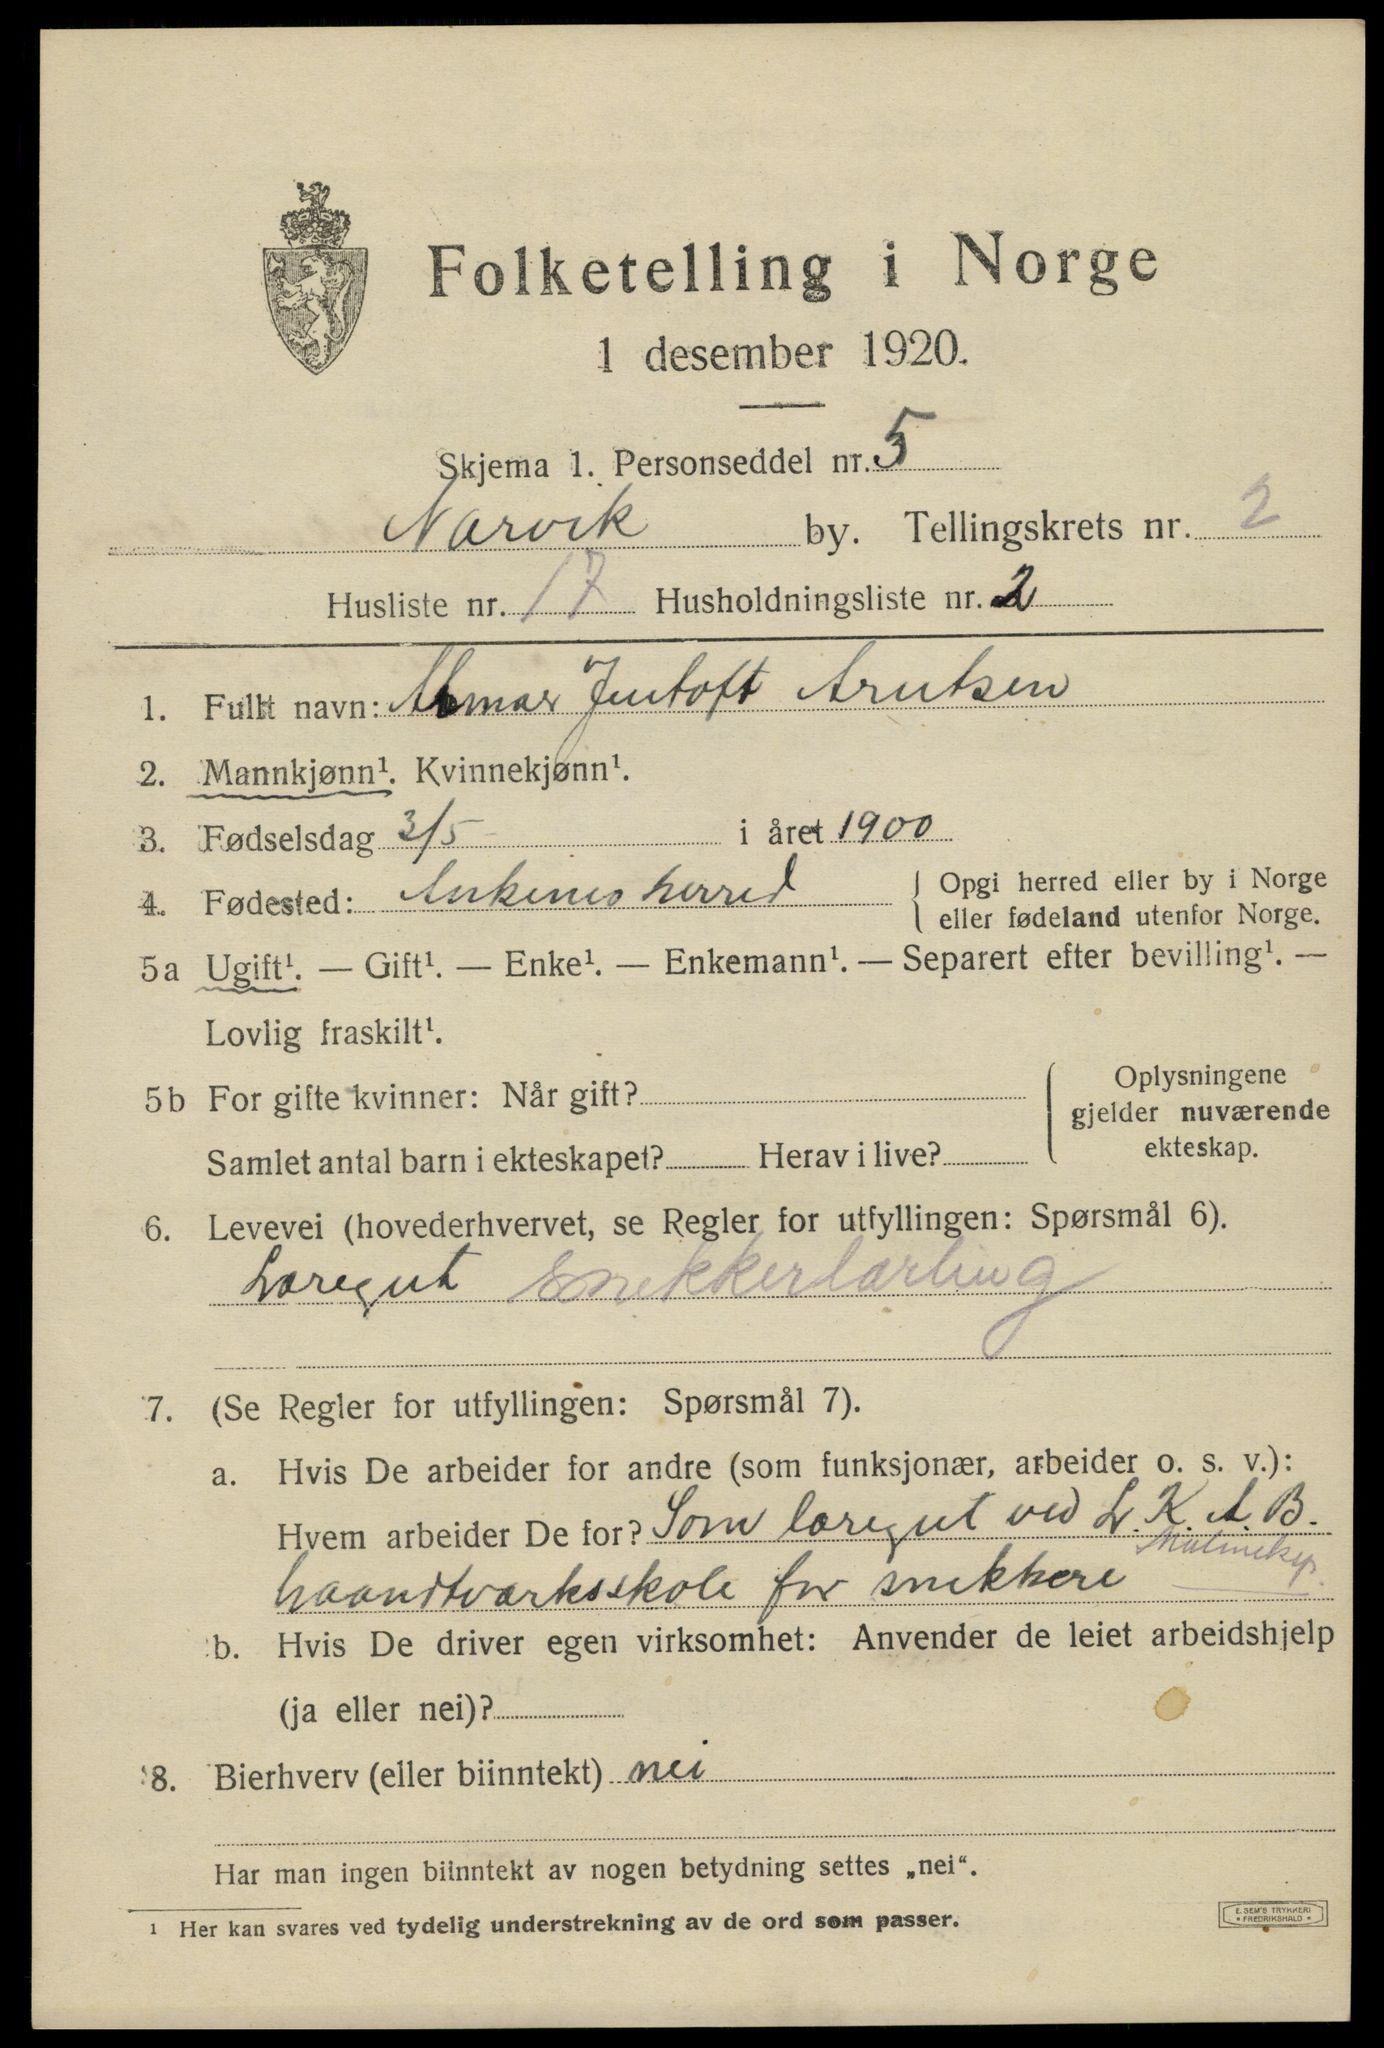 Folketelling i Norge
1 desember 1920.
Skjema 1. Personseddel nr. 5
Narvik by. Tellingskrets nr. 2
Husliste nr. 17 Husholdningsliste nr. 2
1. Fullt navn: Jentoft Arntsen
2. Mannkjønn¹. Kvinnekjønn¹.
3. Fødselsdag 3/5 i året 1900
4. Fødested: Ankenes herred { Opgi herred eller by i Norge
eller fødeland utenfor Norge.
5a Ugift¹. — Gift¹. — Enke¹. — Enkemann¹. — Separert efter bevilling¹. —
Lovlig fraskilt¹.
5b For gifte kvinner: Når gift?
Samlet antal barn i ekteskapet? Herav i live?
Oplysningene
gjelder nuværende
ekteskap.
6. Levevei (hovederhvervet, se Regler for utfyllingen: Spørsmål 6).
Læregut snekkerlærling
7. (Se Regler for utfyllingen: Spørsmål 7).
a. Hvis De arbeider for andre (som funksjonær, arbeider o. s. v.):
Hvem arbeider De for? Som læregut ved L. K. A. B.
haandtværksskole for snekkere
b. Hvis De driver egen virksomhet: Anvender de leiet arbeidshjelp
(ja eller nei)?
8. Bierhverv (eller biinntekt) nei
Har man ingen biinntekt av nogen betydning settes „nei“.
1 Her kan svares ved tydelig understrekning av de ord som passer.
E. SEM'S TRYKKERI
* FREDRIKSHALD *